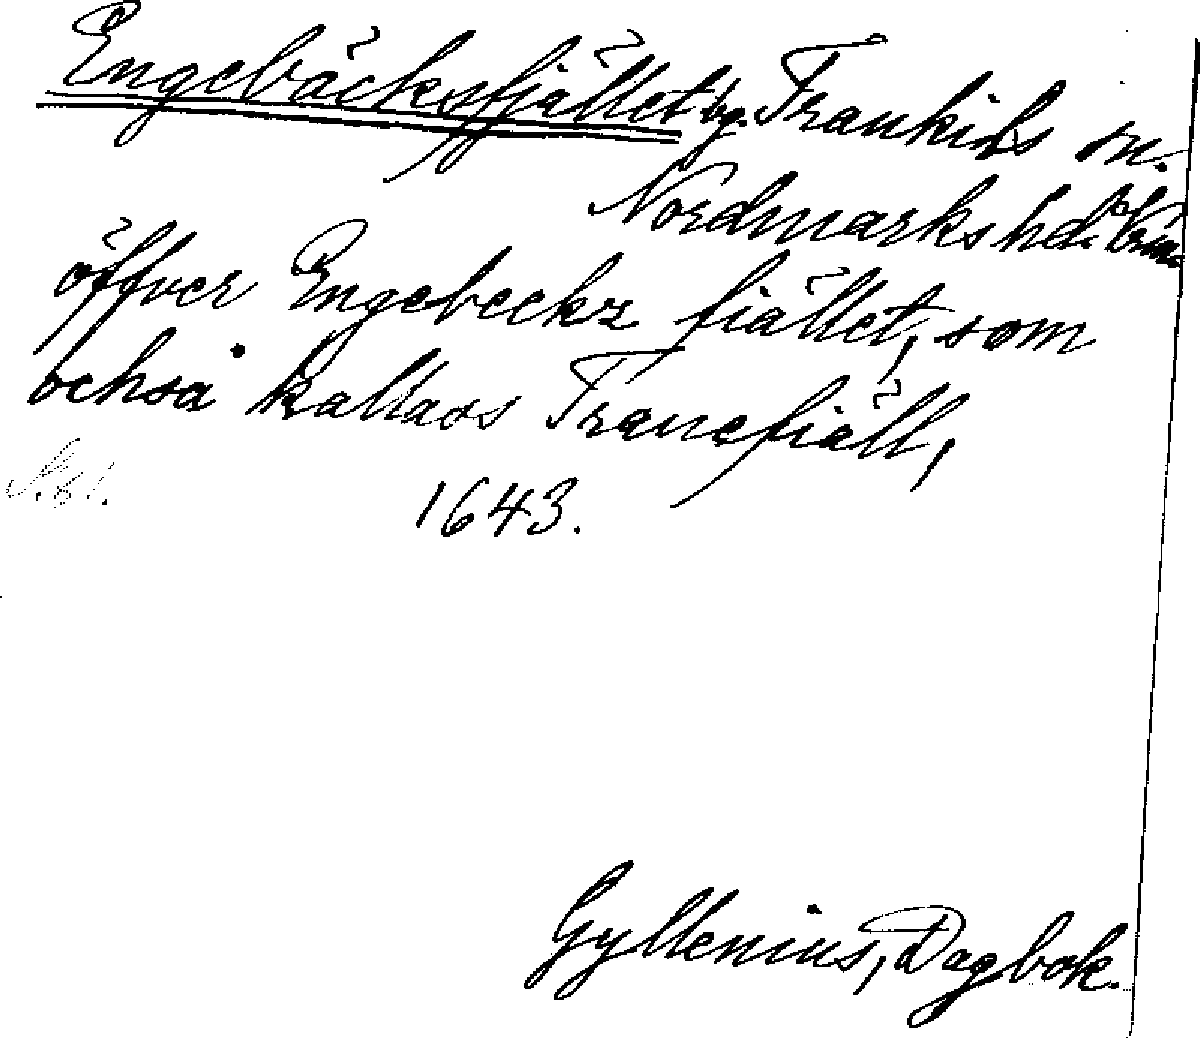 Engebäcksfjället bg. Trankils sn.
Nordmarks hd.
öffver Engebeckz fiället, som
ochså kallass Tranefiäll,
1643.
Gyllenius, Dagbok.